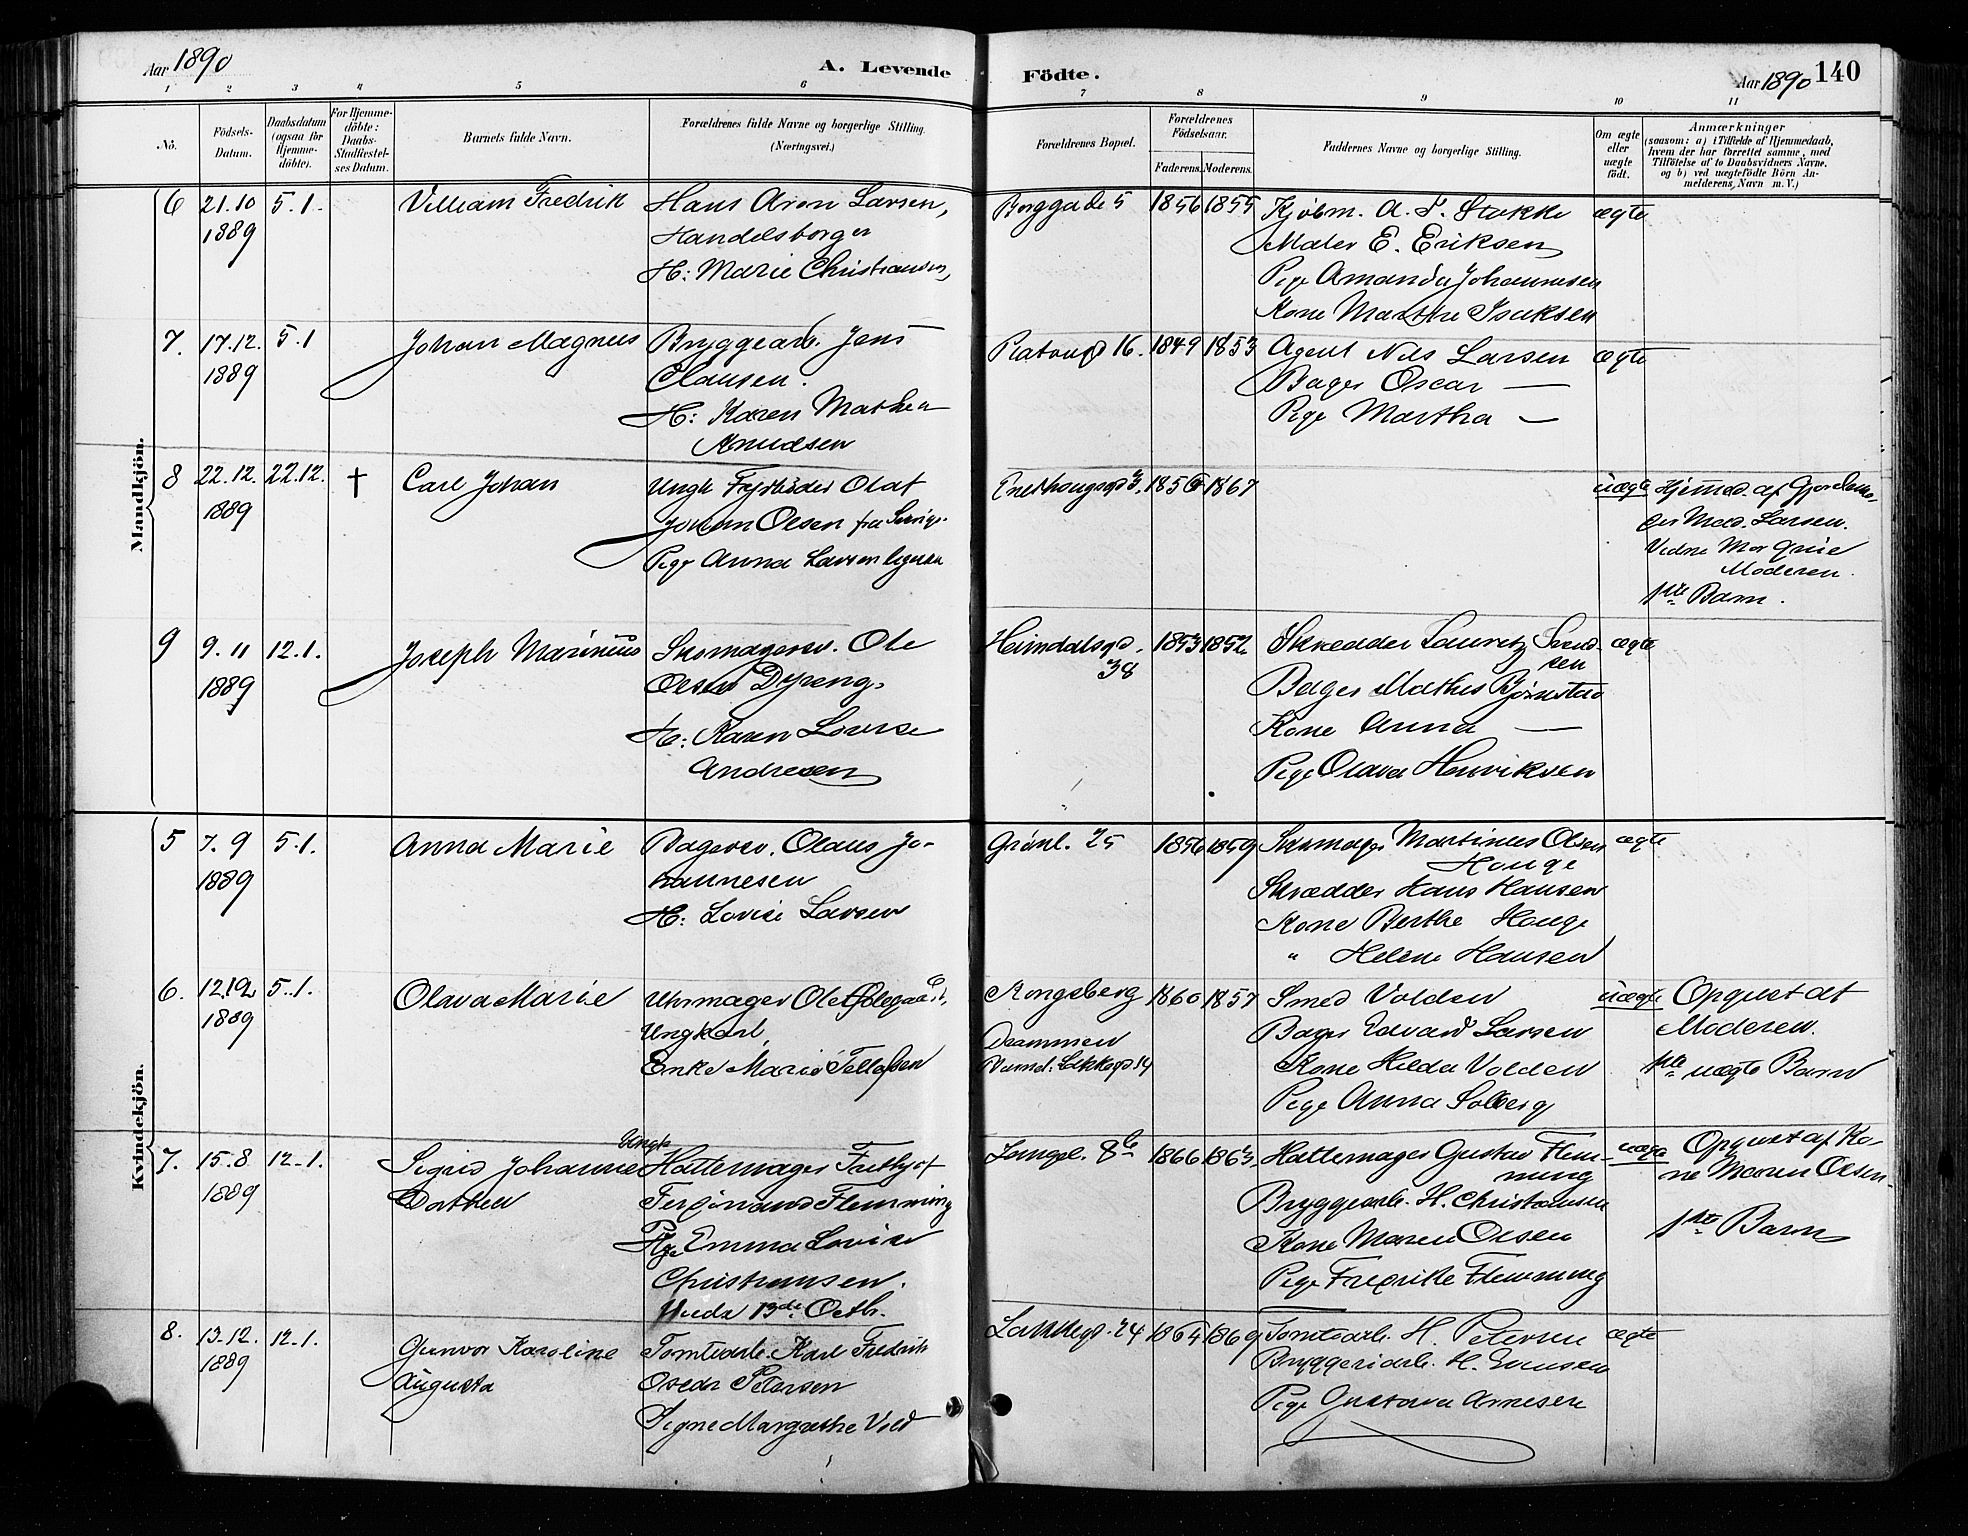 Aar 1890
A. Levende
Födte.
Aar 1890 140
1 2 3 4 5 6 7 8 9 10 11
No.
Födsels-
Datum.
Daabsdatum
(ogsaa for
Hjemme-
döbte).
For Hjemme-
döbte:
Daabs-
Stadfæstel-
ses Datum.
Barnets fulde Navn.
Forældrenes fulde Navne og borgerlige Stilling.
(Næringsvei.)
Forældrenes Bopæl.
Forældrenes
Födselsaar.
Faderens. Moderens.
Faddernes Navne og borgerlige Stilling.
Om ægte
eller
uægte
födt.
Anmærkninger
(saasom: a) i Tilfælde af Hjemmedaab,
hvem der har forrettet samme, med
Tilföielse af to Daabsvidners Navne.
og b) ved uægtefödte Börn An-
melderens Navn m. V.)
Mandkjön.
6 21.10 5.1. Villiam Fredrik Hans Aron Larsen, Borggade 5 1856 1855 Kjøbm. A. P. Stokke ægte
1889 Handelsborger Maler E. Eriksen
H: Marie Christiansen, Pige Amanda Johannesen
Kone Marthe Isaksen
7. 17.12. 5.1 Johan Magnus Bryggearb. Jens Platougd 16. 1849 1853 Agent Nils Larsen ægte
1889 Clausen. Bager Oscar —
H: Karen Mathea Pige Martha —
Knudsen
8 22.12. 22.12. † Carl Johan Ungk Fyrbøder Olaf 1867 uægte Hjemmed. af Gjordemo-
1889 Johan Olsen fra Sverige. der Mad. Larsen.
Pige Anna Larsen ligesaa
Moderen.
1ste Barn.
9 9.11 12.1. Joseph Marinius Skomagersv. Ole Heimdalsgd. 1853 1852 Skrædder Lauritz Svend- ægte
1889 Olsen Dyreng. 38 sen
Bager Mathis Bjørnstad
H: Karen Lovise Kone Anna —
Andresen Pige Olava Henriksen
Kvindekjön.
5 7.9 5.1. Anna Marie Bagersv. Olaus Jo- Grønl. 25 1856 1859 Skomager Martinus Olsen ægte
Houge
1889 hannesen Skrædder Hans Hansen
H: Lovise Larsen Kone Berthe Houge
" Helene Hansen
6. 12.12 5.1. Olava Marie Uhrmager Ole Kongsberg 1860 1857 Smed Volden uægte Opgivet af
1889 Ungkarl, Drammen Bager Edvard Larsen Moderen.
Enke Marie Tollefsen Lakkegd 14 Kone Hilda Volden 1ste uægte Barn
Pige Anna Solberg
Ungk
7. 15.8 12.1. Sigrid Johanne Hattemager Frithjof Langgl. 8b 1866 1863 Hattemager Gustav Flem- uægte Opgivet af Ko-
ming
1889 Dorthea Ferdinand Flemming ne Maren Olsen.
Bryggearb. H. Christiansen
Pige Emma Lovise Kone Maren Olsen 1ste Barn
Christiansen. Pige Fredrikke Flemming
13de Octb.
8. 13.12. 12.1. Gunvor Karoline Tomtearb. Karl Fredrik Lakkegd. 24 1864 1869 Tomtearb. H. Petersen ægte
1889 Augusta Oscar Petersen Bryggeriarb. H. Evensen
Signe Margrethe Vold Pige Gustava Arnesen